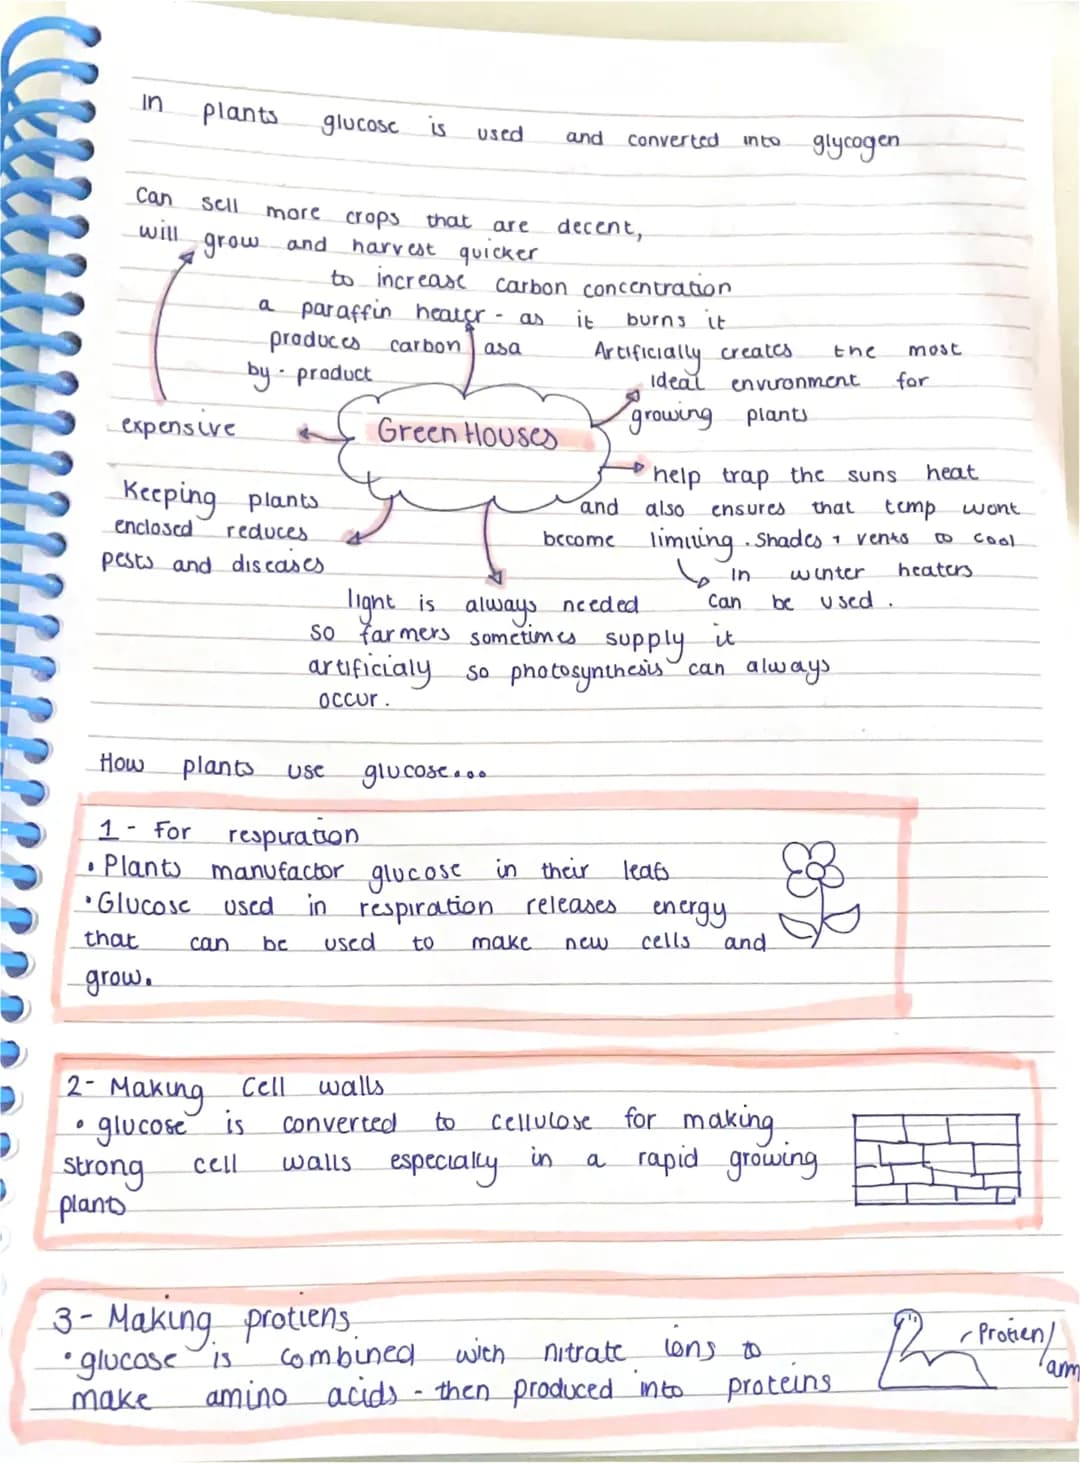 In plants glucose is used and converted into glycogen
Can sell more crops that are decent,
will grow and harvest quicker
to increase carbon concentration
a paraffin heater - as it burns it
produces carbon asa
by - product
Artificially creates the most
ideal environment for
growing plants
expensive
Green Houses
help trap the suns heat
and also ensures that temp wont
become limiting. Shades + vents to cool
in winter heaters
can be used.
Keeping plants
enclosed reduces
pests and diseases
light is always needed
so farmers sometimes supply it
artificialy so photosynthesis can always
occur.
How plants use glucose...
1 - For respiration
• Plants manufactor glucose in their leafs
• Glucose used in respiration releases energy
that can be used to make new cells and
grow.
2- Making Cell walls
• glucose is converted to cellulose for making
strong cell walls especially in a rapid growing
plants
3- Making protiens
• glucose is combined with nitrate ions to
make amino acids - then produced into proteins
Protien/
arm